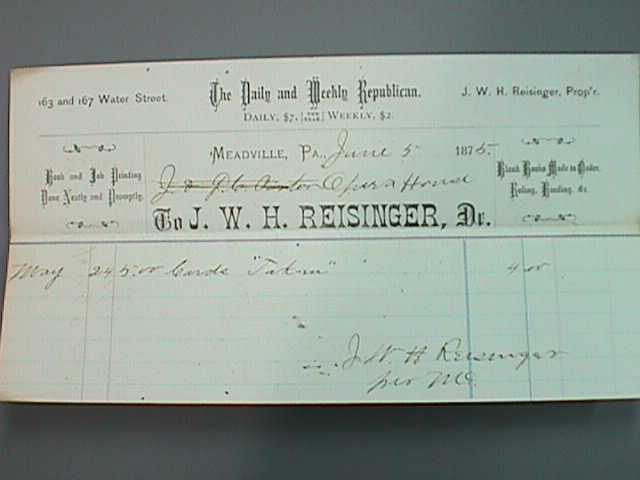 163 and 167 Water Street.
The Daily and Weekly Republican.
J. W. H. Reisinger, Prop'r.
DAILY, $7, PER YEAR WEEKLY, $2.
MEADVILLE, PA., June 5 1875
Book and Job Printing
Done Neatly and Promptly.
Opera House
Blank Books Made to Order.
Ruling, Binding, &c.
To J. W. H. REISINGER, Dr.
May 24 500 Cards "Taken" 4 00
J W H Reisinger
per Mc